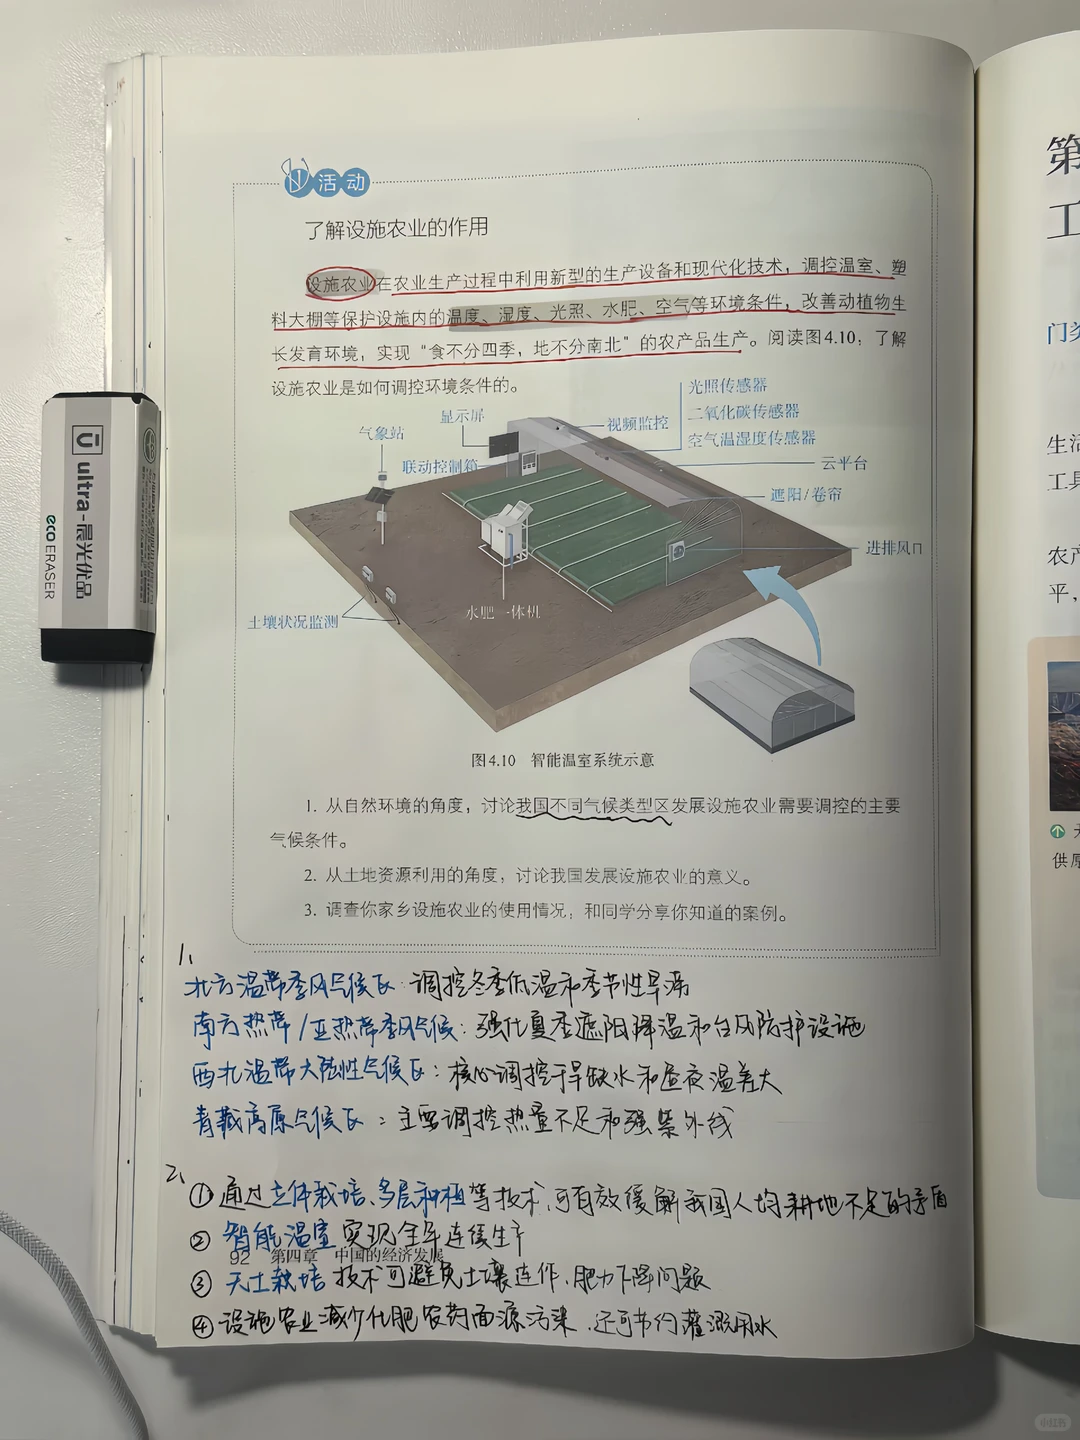 活动
了解设施农业的作用
设施农业在农业生产过程中利用新型的生产设备和现代化技术，调控温室、塑
料大棚等保护设施内的温度、湿度、光照、水肥、空气等环境条件，改善动植物生
长发育环境，实现“食不分四季，地不分南北”的农产品生产。阅读图4.10，了解
设施农业是如何调控环境条件的。
光照传感器
二氧化碳传感器
空气温湿度传感器
显示屏
视频监控
气象站
联动控制箱
云平台
遮阳/卷帘
进排风口
水肥一体机
土壤状况监测
图4.10 智能温室系统示意
1. 从自然环境的角度，讨论我国不同气候类型区发展设施农业需要调控的主要
气候条件。
2. 从土地资源利用的角度，讨论我国发展设施农业的意义。
3. 调查你家乡设施农业的使用情况，和同学分享你知道的案例。
1、
北方温带季风气候区：调控冬季低温和季节性旱涝
南方热带/亚热带季风气候：强化夏季遮阳降温和台风防护设施
西北温带大陆性气候区：核心调控干旱缺水和昼夜温差大
青藏高原气候区：主要调控热量不足和强紫外线
2、
①通过立体栽培、多层种植等技术，可有效缓解我国人均耕地不足的矛盾
②智能温室实现全年连续生产
92 第四章 中国的经济发展
③无土栽培技术可避免土壤连作、肥力下降问题
④设施农业减少化肥农药面源污染，还可节约灌溉用水
ultra-晨光优品
eco ERASER
第
工
门类
生活
工具
农产
平，
供原
小红书